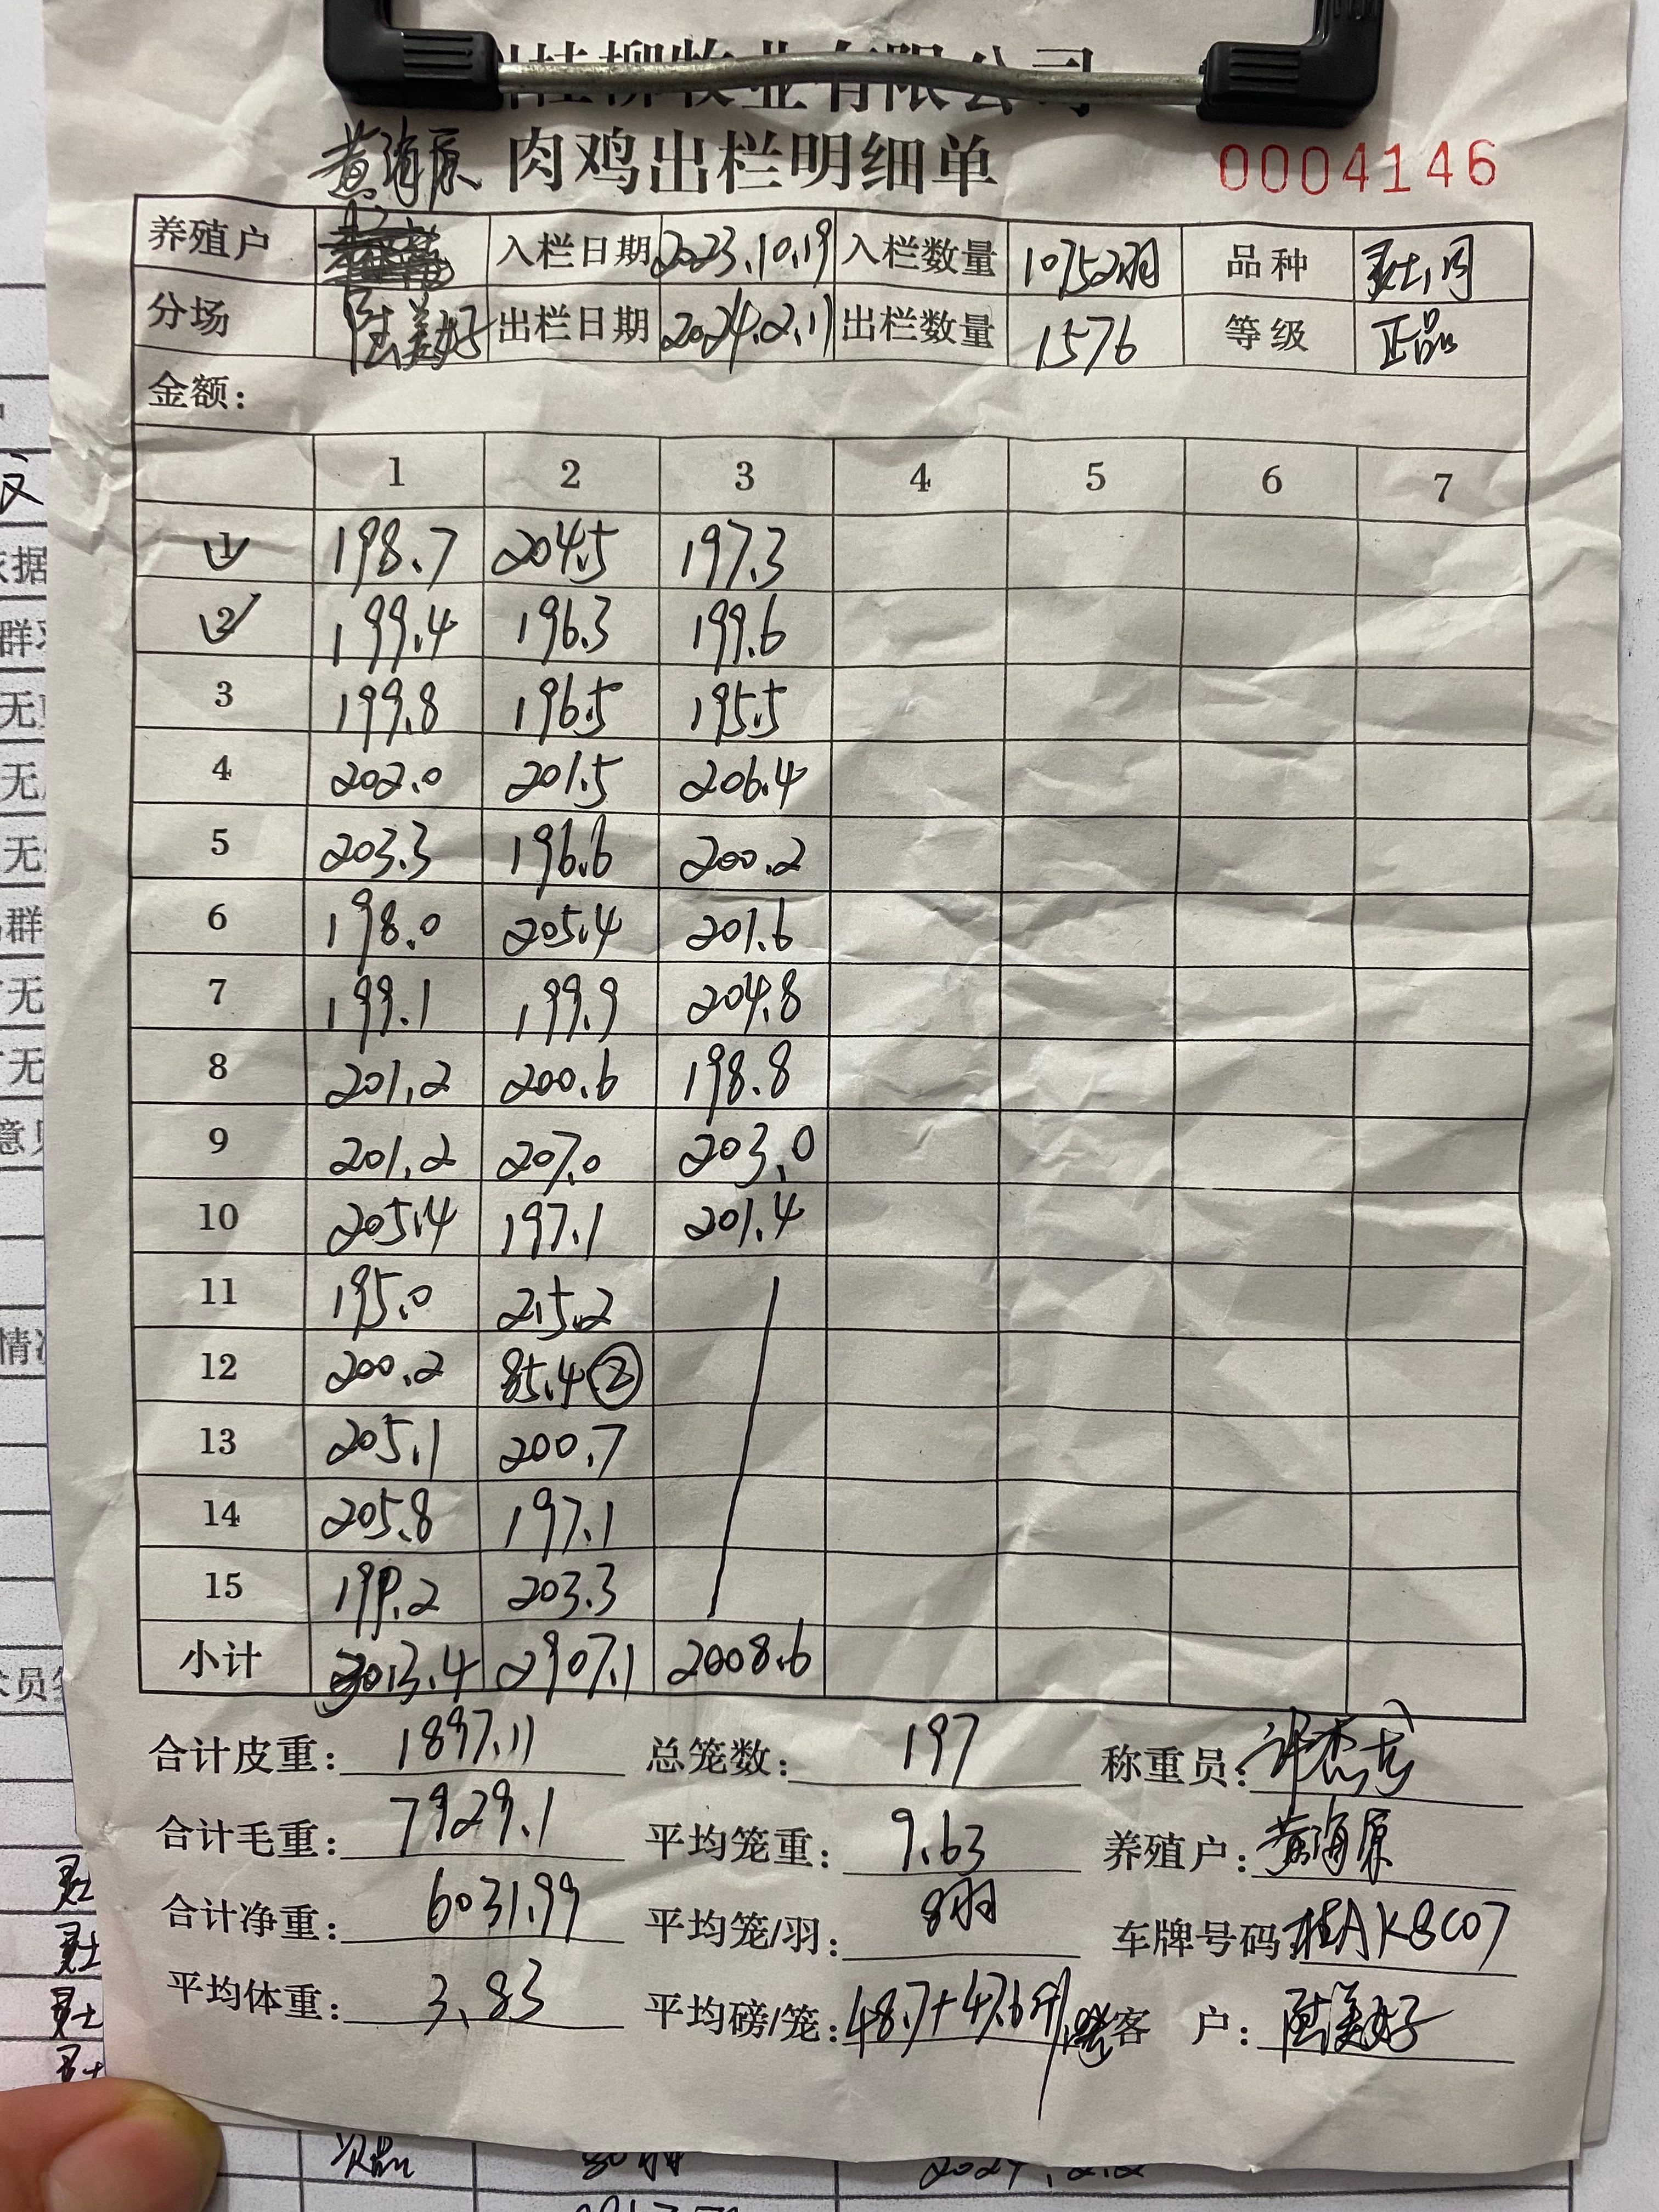 桂柳牧业有限公司
黄海原 肉鸡出栏明细单 0004146
养殖户 入栏日期 2023.10.19 入栏数量 10752羽 品种
分场 陆美好 出栏日期 2024.2.11 出栏数量 1576 等级 正品
金额:
1 2 3 4 5 6 7
1 198.7 204.5 197.3
2 199.4 196.3 199.6
3 199.8 196.5 195.5
4 202.0 201.5 206.4
5 203.3 196.6 200.2
6 198.0 205.4 201.6
7 199.1 199.9 204.8
8 201.2 200.6 198.8
9 201.2 207.0 203.0
10 205.4 197.1 201.4
11 195.0 215.2
12 200.2 85.4②
13 205.1 200.7
14 205.8 197.1
15 199.2 203.3
小计 3013.4 2907.1 2008.6
合计皮重: 1897.11 总笼数: 197 称重员: 许杰龙
合计毛重: 7929.1 平均笼重: 9.63 养殖户: 黄海原
合计净重: 6031.99 平均笼/羽: 8羽 车牌号码: 桂AK8C07
平均体重: 3.83 平均磅/笼: 48.7+47.6 客 户: 陆美好